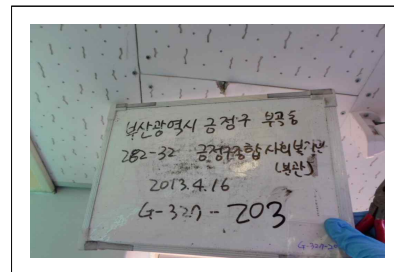 부산광역시 금정구 부곡동
262-32 금정구종합사회복지관
(본관)
2013.4.16
G-327-203